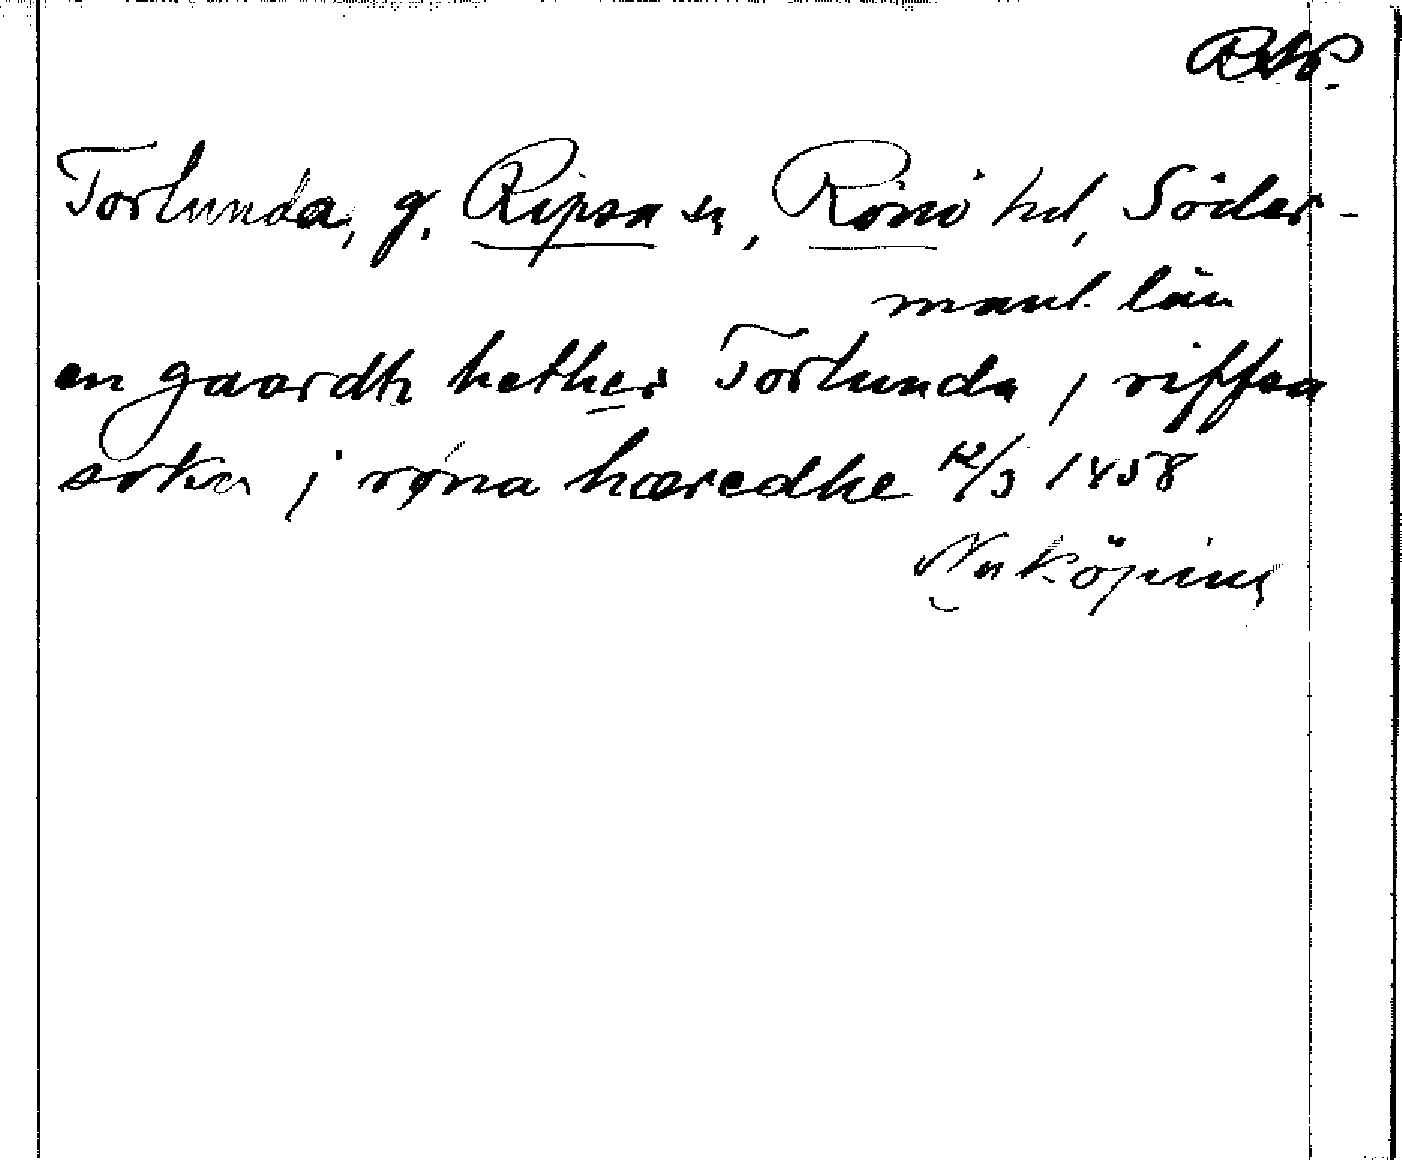 Torlunda, g. Ripsa sn, Rönö hd, Söder-
manl. län
en gaardh hether Torlunda j riffsa
sokn j røna hæredhe 12/3 1458
Nyköping